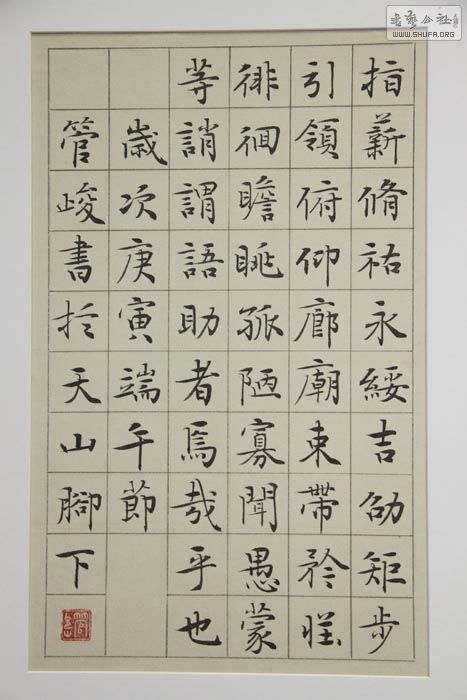 指薪脩祜永綏吉劭矩步
引領俯仰廊廟束帶矜莊
徘徊瞻眺孤陋寡聞愚蒙
等誚謂語助者焉哉乎也
歲次庚寅端午節
管峻書於天山腳下
書藝公社
WWW.SHUFA.ORG